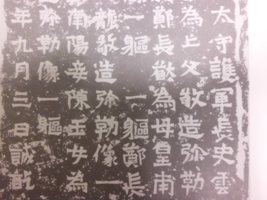 太守護軍長史雲
為亡父敬造弥勒
鄭長猷為母皇甫
一軀一軀鄭長
龍敬造弥勒像一
南陽妾陳玉女為
弥勒像一軀
年九月三日誡訖